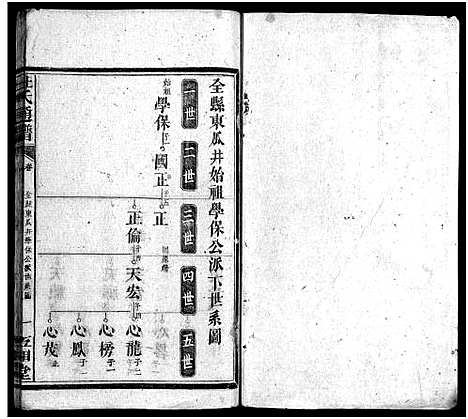 全縣東瓜井始祖學保公派下世系圖
一世 二世 三世 四世 五世
始祖 學保 國正 正
正倫 天宏 心龍 子二
心榜 子一
心鳳 子一
心茂 止
氏通譜 卷 全縣東瓜井學保公派世系圖 一